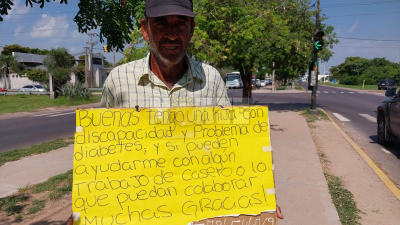 Buenas tengo una hija con
discapacidad y Problema de
diabetes, y si pueden
ayudarme con algún
Trabajo de casero o lo
que puedan colaborar
Muchas Gracias!